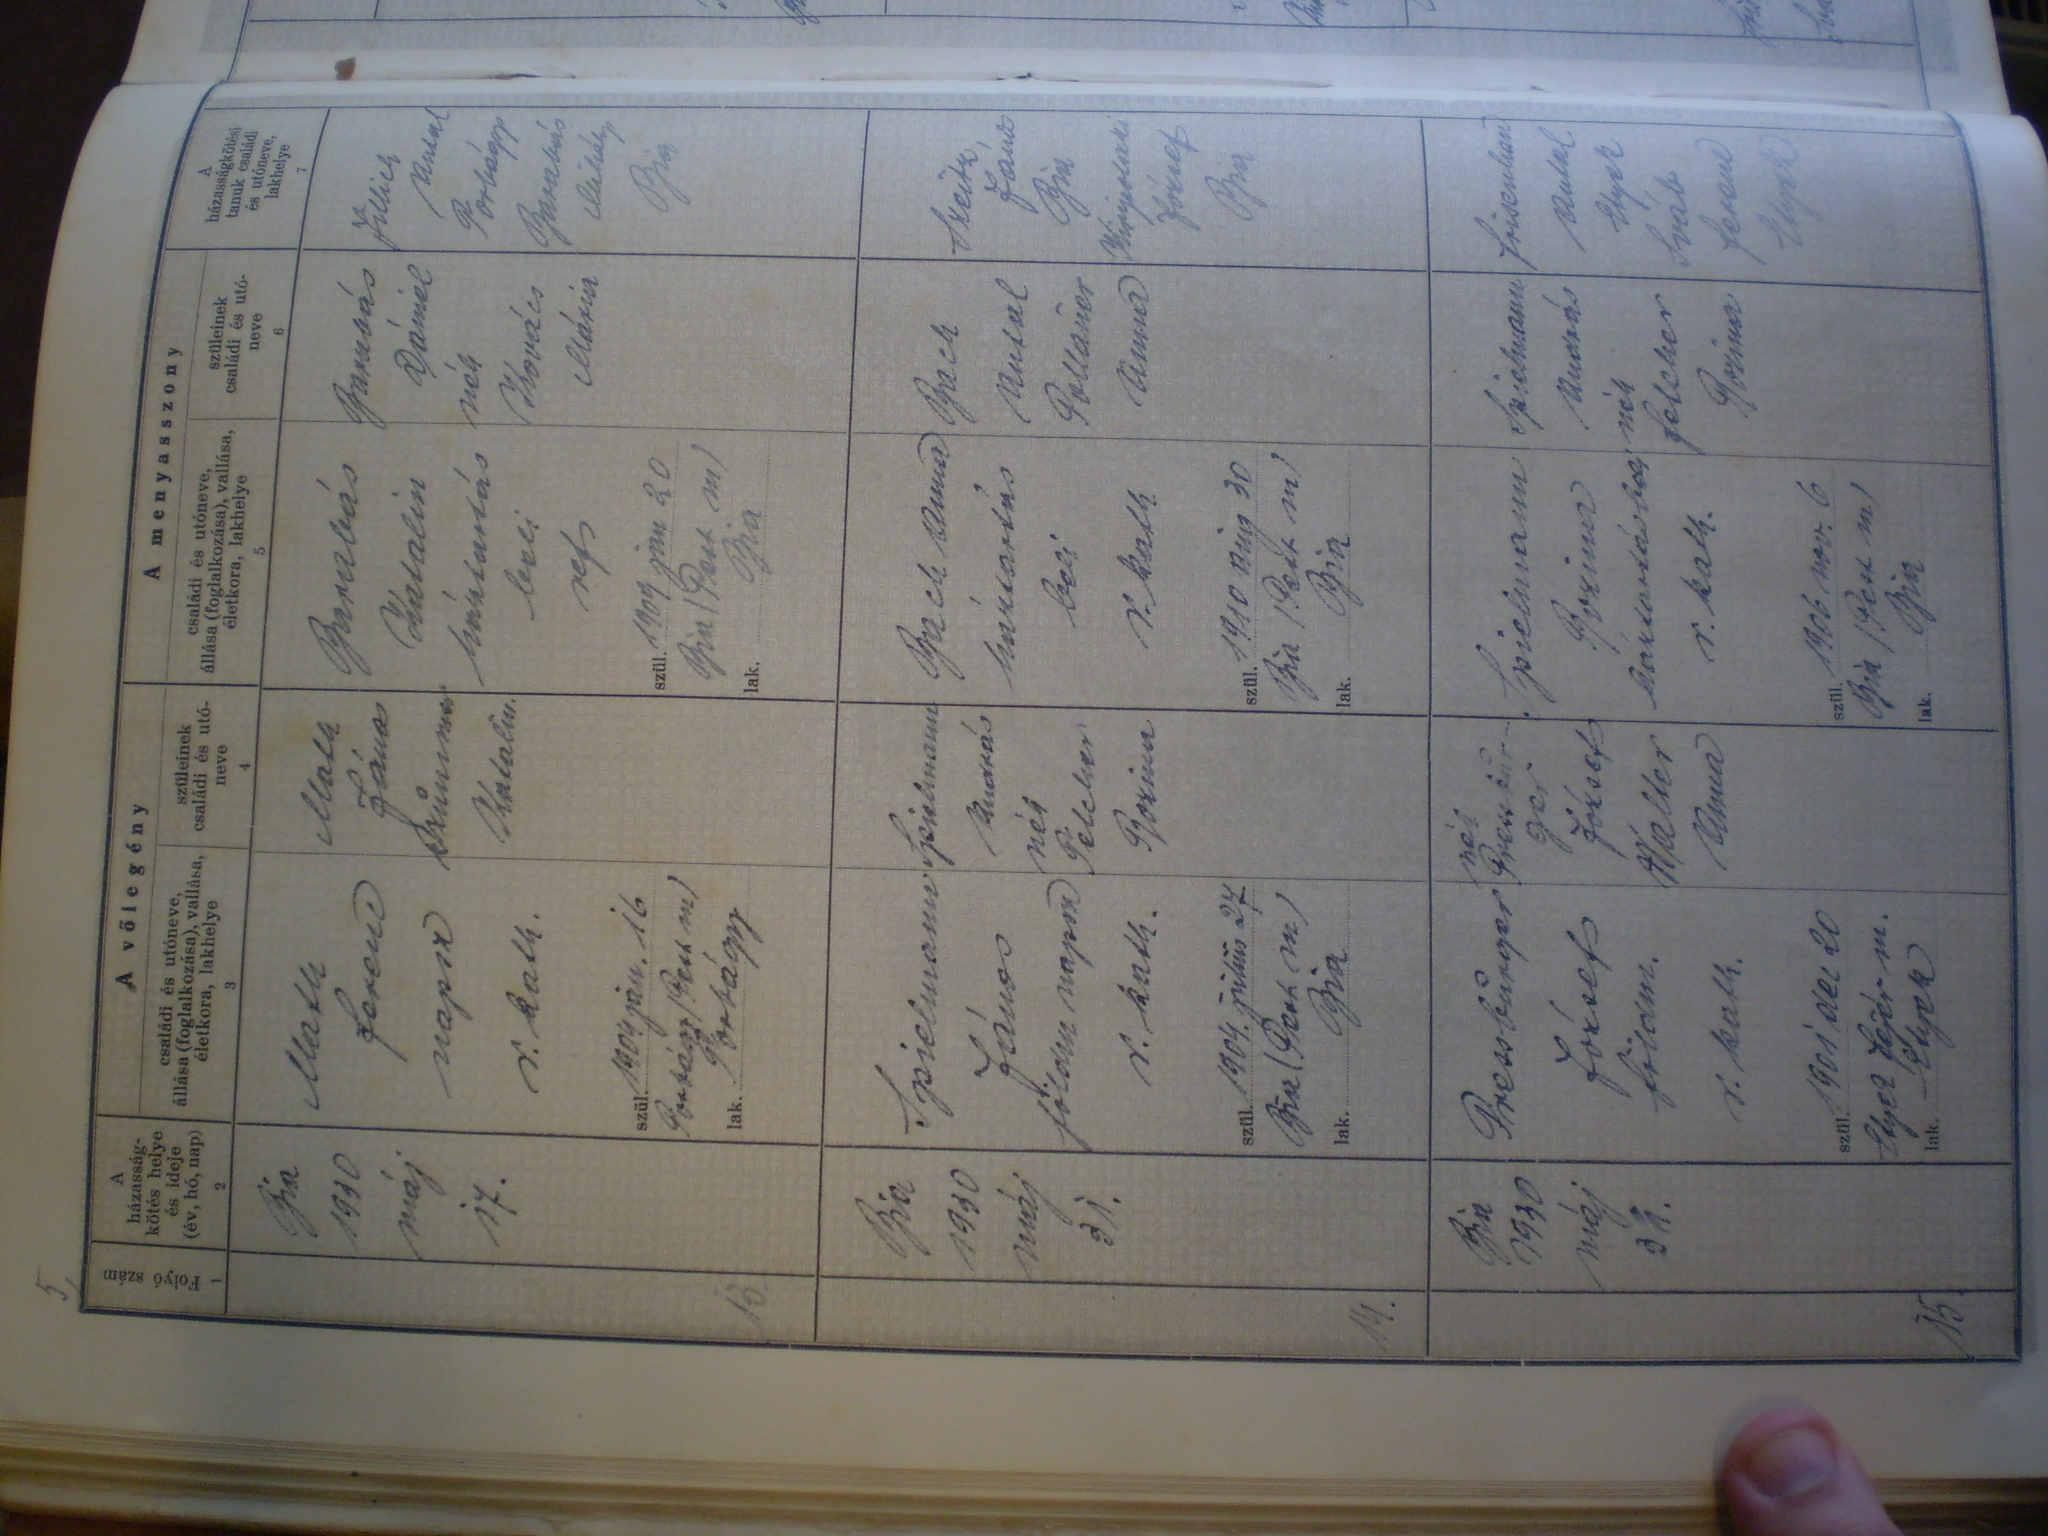 5,
A vőlegény
A menyasszony
Folyó szám
A házasság-
kötés helye
és ideje
(év, hó, nap)
családi és utóneve,
állása (foglalkozása), vallása,
életkora, lakhelye
szüleinek
családi és utó-
neve
családi és utóneve,
állása (foglalkozása), vallása,
életkora, lakhelye
szüleinek
családi és utó-
neve
A
házasságkötési
tanuk családi
és utóneve,
lakhelye
1
2
3
4
5
6
7
13.
Bia
1930
máj
17.
Math
Ferenc
napsz
r. kath.
szül. 1904 jan. 16
Torbágy (Pest m)
lak. Torbágy
Math
János
Katalin.
Barabás
Katalin
háztartás
beli
ref
szül. 1909 jan 20
Bia (Pest m)
lak. Bia
Barabás
Dániel
néh
Kovács
Mária
Antal
Torbágy
Barabás
Mihály
Bia
14.
Bia
1930
máj
31.
Spielmann
János
földm napsz
r. kath.
szül. 1904. julius 27
Bia (Pest m)
lak. Bia
Spielmann
András
néh
Felcher
Rozina
Bach Anna
háztartás
beli
r. kath
szül. 1910 aug 30
Bia (Pest m)
lak. Bia
Bach
Antal
Pollauer
Anna
János
Bia
József
Bia
15.
Bia
1930
máj
31.
Pressburger
József
földm.
r. kath.
szül. 1901 dec 20
Etyek Fejér m.
lak. Etyek
néh
Pressbur-
ger
József
Walter
Anna
Spielmann
Rozina
háztartásbeli
r. kath.
szül. 1906 nov. 6
Bia (Pest m)
lak. Bia
Spielmann
András
néh
Felcher
Rozina
Antal
Etyek
Sváb
Ferenc
Etyek